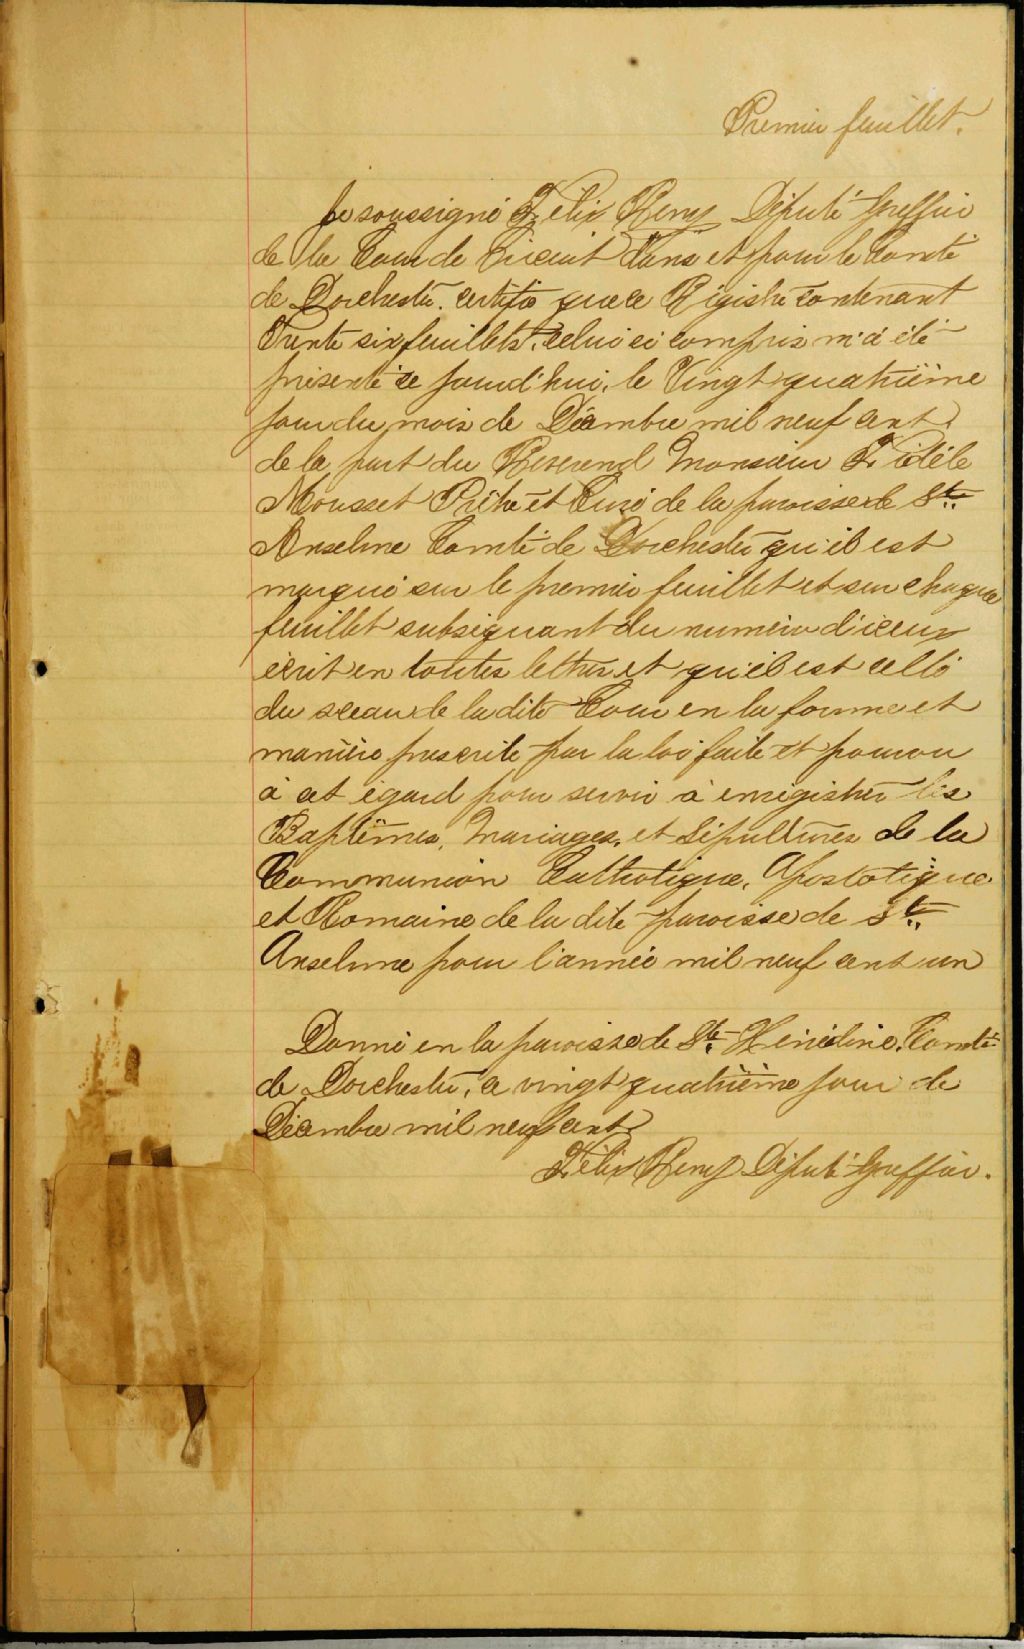 Premier feuillet.
Je soussigné Félix Remy Député Greffier
de la Cour de Circuit dans et pour le Comté
de Dorchester. certifie que ce Régistre contenant
Trente six feuillets, celui ci compris m'a été
présenté ce jourd'hui, le Vingt quatrième
jour du mois de Décembre mil neuf cent
de la part du Reverend Monsieur Fidèle
Mousset Prêtre et Curé de la paroisse de Ste
Anselme Comté de Dorchester qu'il est
marqué sur le premier feuillet et sur chaque
feuillet subséquant du numéro d'iceux
écrit en toutes lettres et qu'il est cellé
du sceau de la dite Cour en la forme et
manière prescrite par la loi faite et pourvu
à cet égard pour servir à enrégistrer les
Baptêmes, Mariages, et Sépultures de la
Communion Catholique, Apostolique
et Romaine de la dite paroisse de St.
Anselme pour l'année mil neuf cent un
Donné en la paroisse de Ste. Hénédine, Comté
de Dorchester, ce vingt quatrième jour de
Décembre mil neuf cent
Félix Remy Député Greffier.